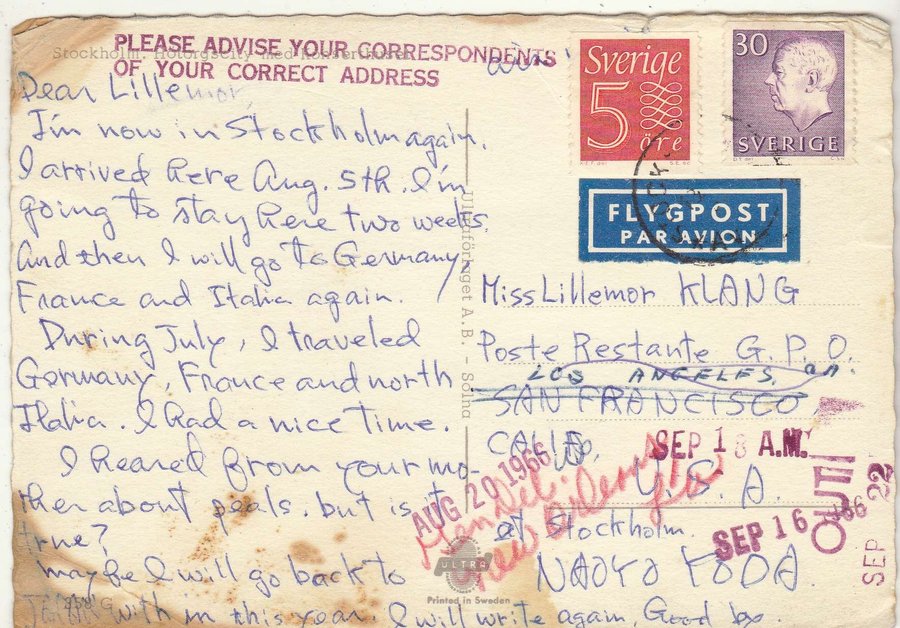 Stockholm. Hötorgscity med Konserthuset
PLEASE ADVISE YOUR CORRESPONDENTS
OF YOUR CORRECT ADDRESS
Dear Lillemor,
I'm now in Stockholm again.
I arrived here Aug. 5th. I'm
going to stay here two weeks.
And then I will go to Germany,
France and Italia again.
During July, I traveled
Germany, France and north
Italia. I had a nice time.
I heared from your mo-
ther about peals. but is it
true?
maybe I will go back to
JAPAN with in this year. I will write again, Good by.
258 G
Ultraförlaget A.B. - Solna
ULTRA
Printed in Sweden
air
Sverige
5
öre
30
SVERIGE
FLYGPOST
PAR AVION
Miss Lillemor KLANG
Poste Restante G.P.O.
LOS ANGELES, CA.
SAN FRANCISCO
CALIF
U.S.A.
at Stockholm.
NAOYO TODA.
AUG 20 1966
Gen Del
New Orleans
SEP 13 A.M.
SEP 16 '66
OUT
SEP 22